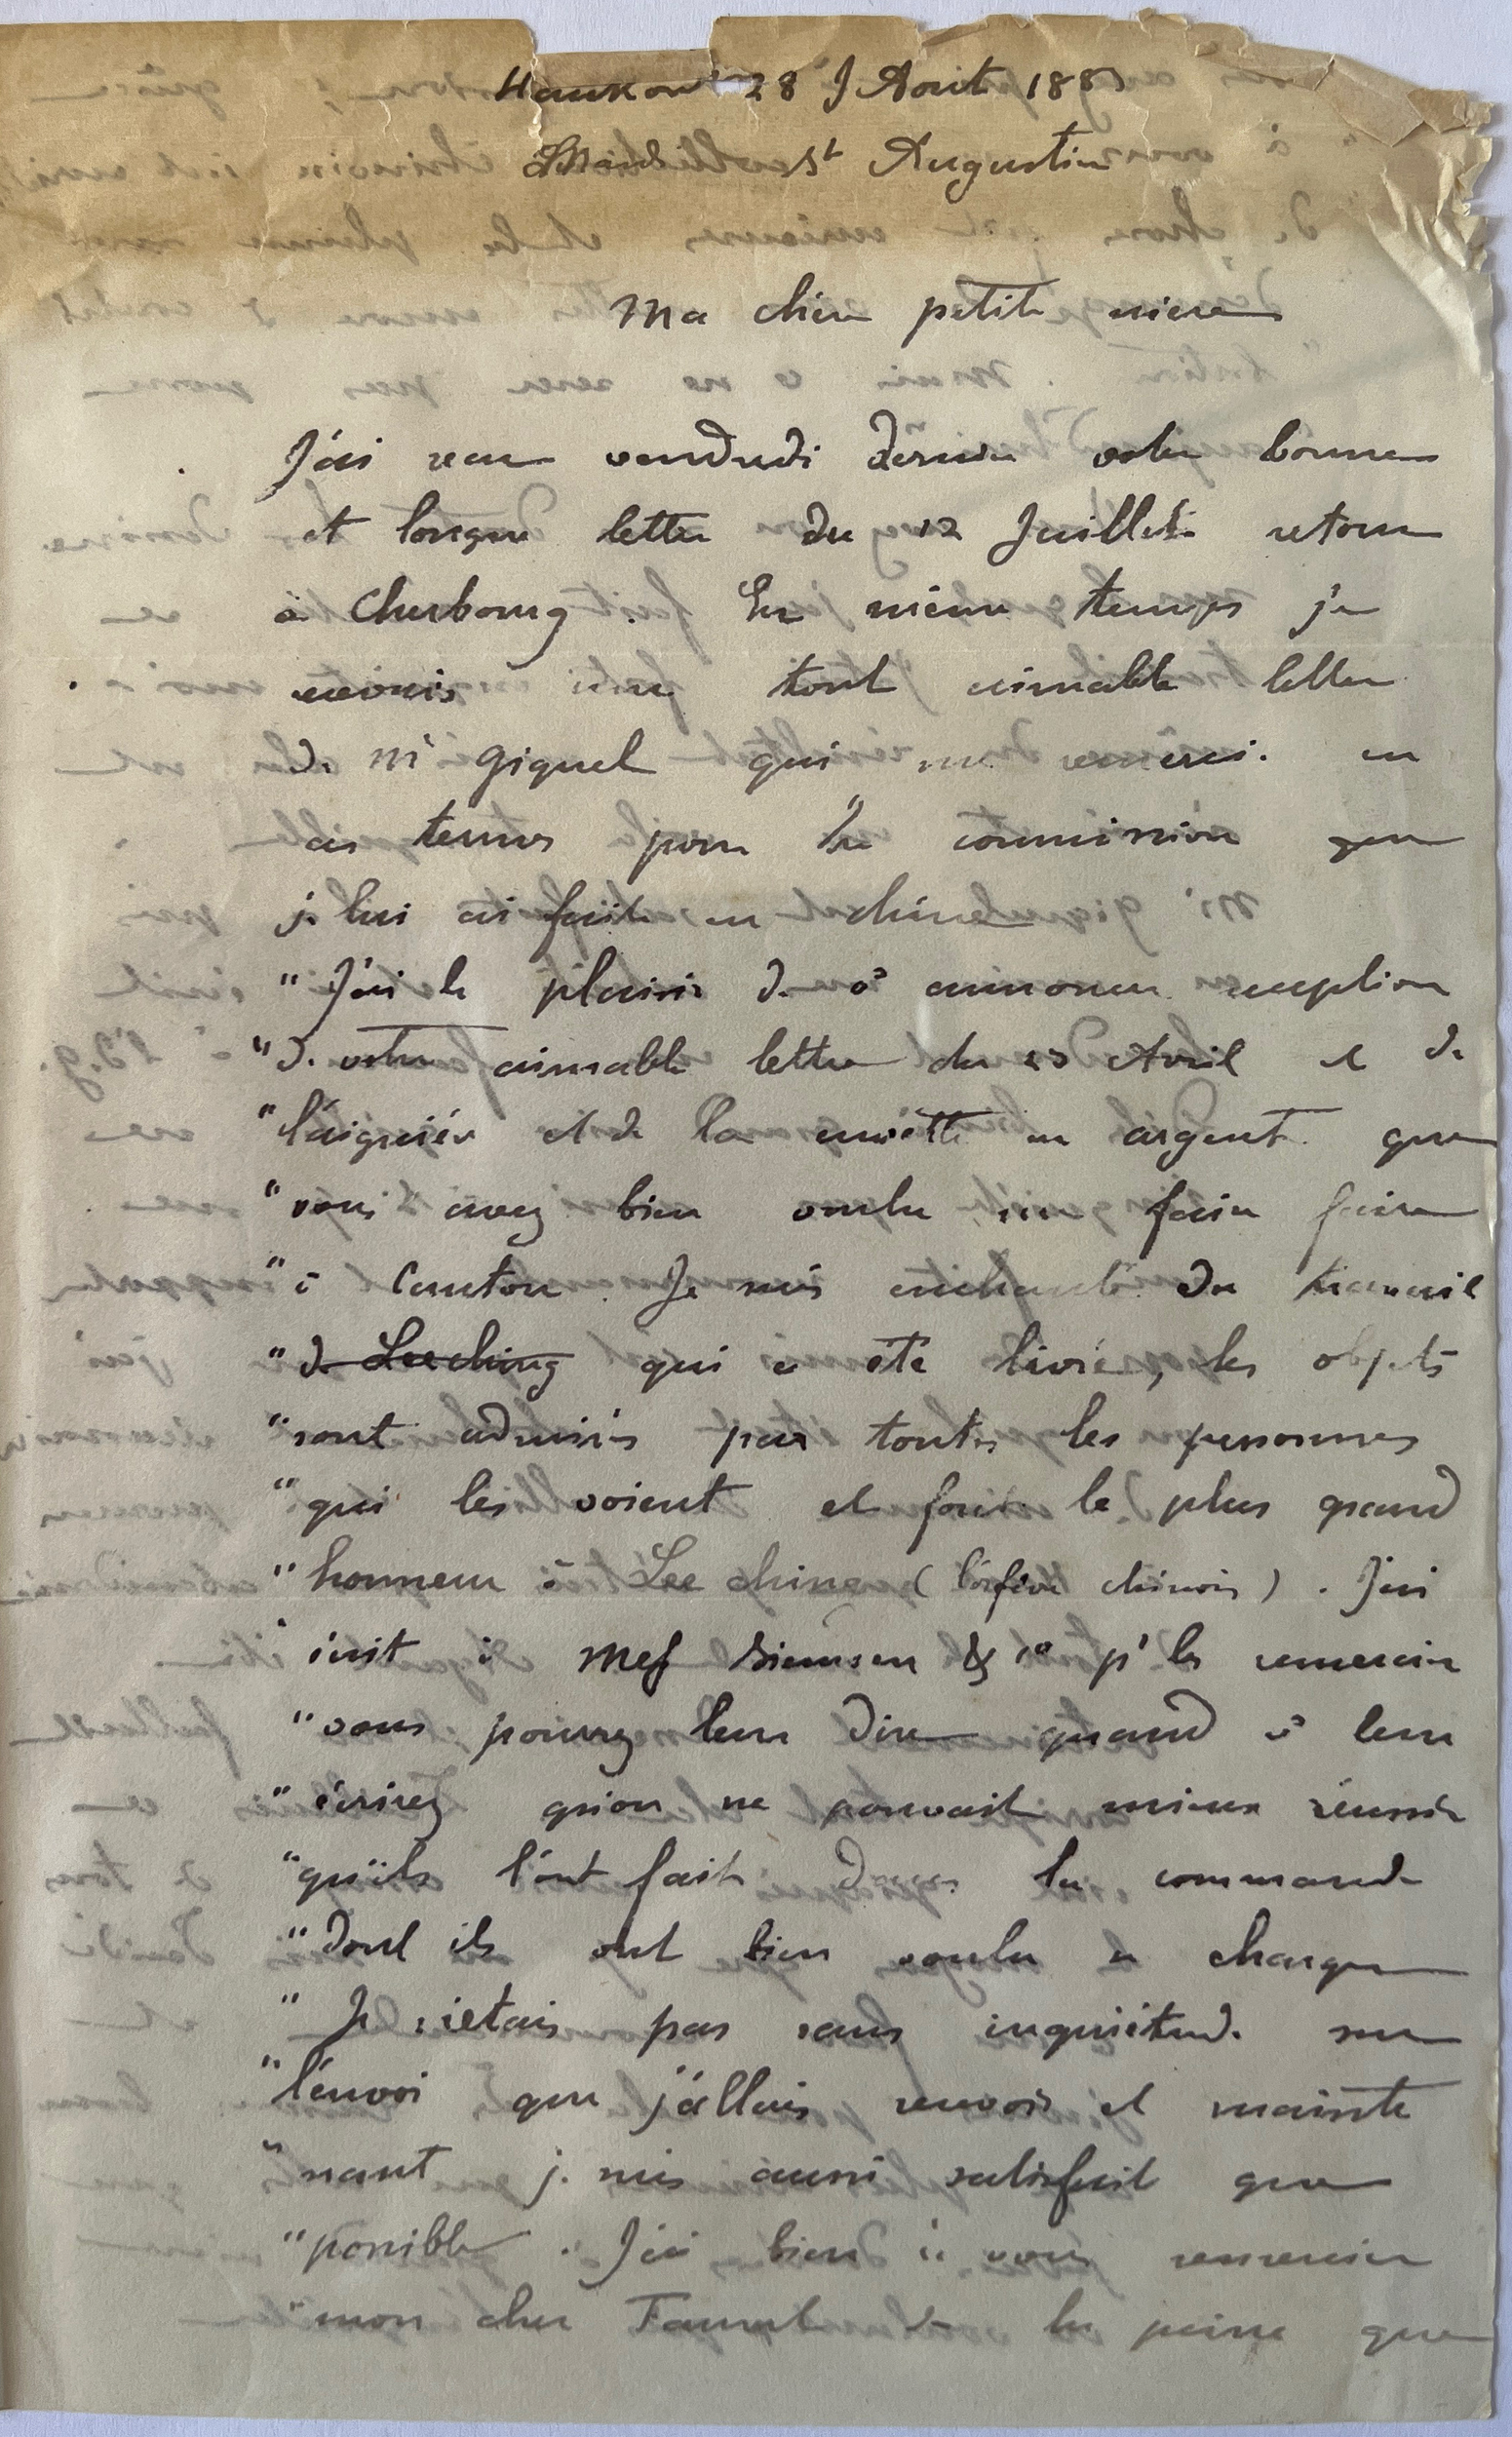 Hankow 28 J Aout 188
Mardi St Augustin
Ma chère petite mère
J'ai reçu vendredi dernier votre bonne
et longue lettre du 12 Juillet retour
à Cherbourg. En même temps je
recevais une tout aimable lettre
de Mr Giquel qui me remercie en
ces termes pour la commission que
je lui ai faite en chine
" J'ai le plaisir de vs annoncer reception
" de votre aimable lettre du 23 Avril et de
" l'aiguière et de la cuvette en argent que
" vous avez bien voulu me faire faire
" à Canton. Je suis enchanté du travail
" de Leeching qui a été livré, les objets
" sont admirés par toutes les personnes
" qui les voient et font le plus grand
" honneur à Lee ching (l'orfèvre chinois). J'ai
" écrit à Mess Siemsen & Co pr les remercier
" vous pourrez leur dire quand vs leur
" écrirez qu'on ne pouvait mieux réussir
" qu'ils l'ont fait dans la commande
" dont ils ont bien voulu se charger
" Je n'étais pas sans inquiétude sur
" l'envoi que j'allais recevoir et mainte
" nant je suis aussi satisfait que
" possible. J'ai bien à vous remercier
" mon cher Fauvel de la peine que